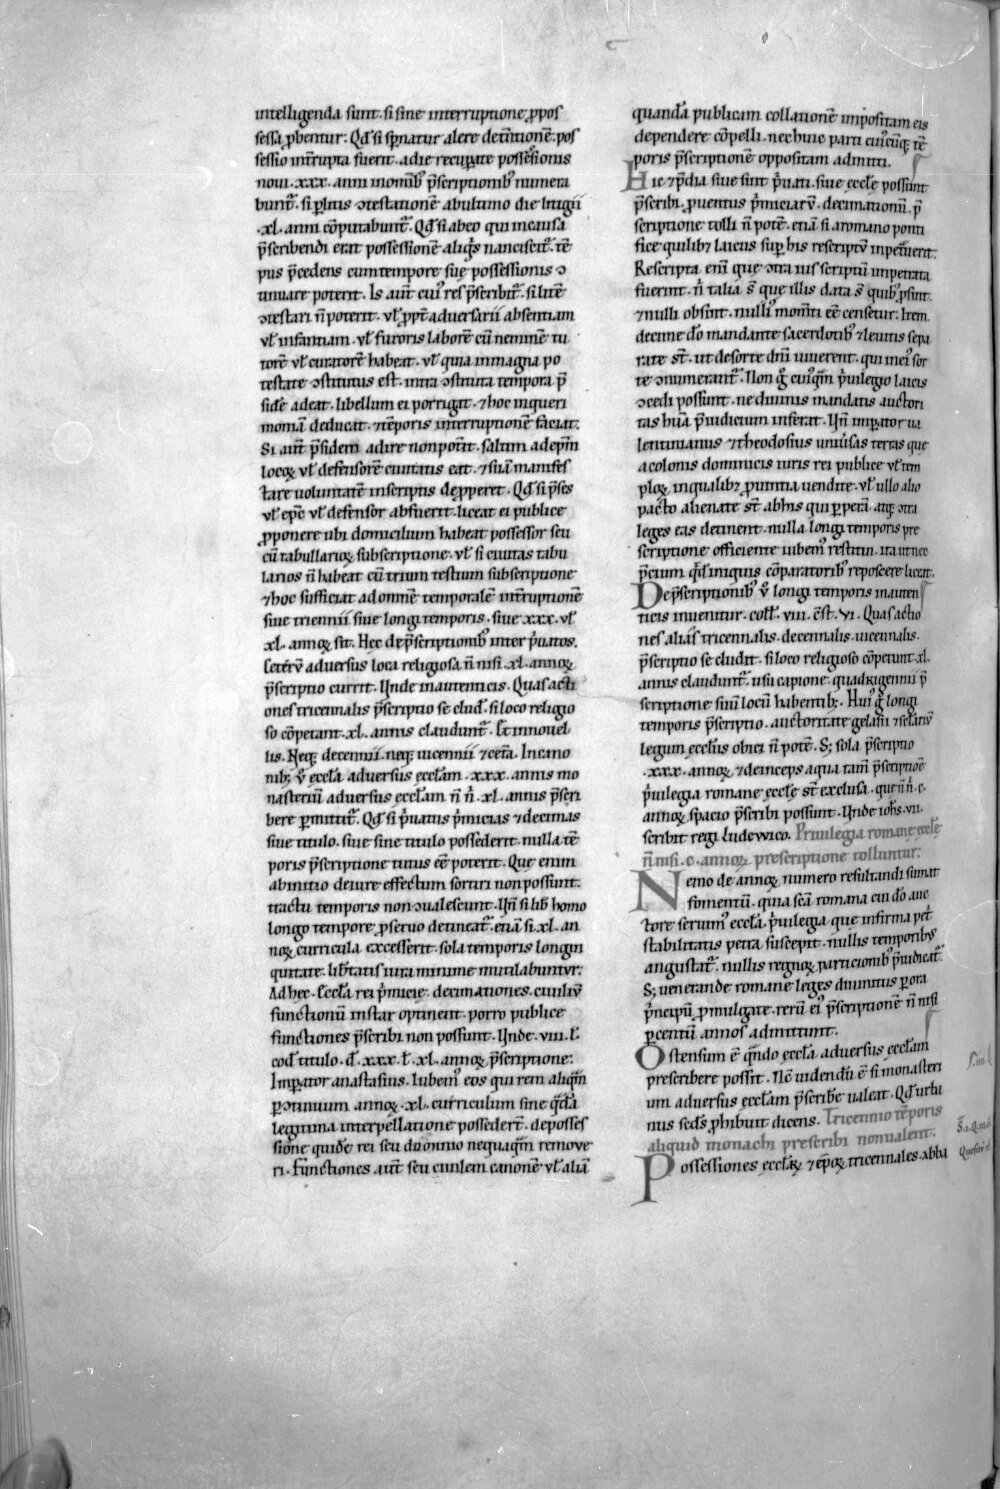 intelligenda sunt. si sine interruptione ꝓpos
sessa ꝓbentur. Qđ si spnatur alere detētionē. pos
sessio inrupta fuerit. a die recuꝑate possessionis
noui .xxx. anni in omībꝰ p̄scriptionibꝰ numera
bunt̄. si pl̄ius ↄtestatione ab ultimo die litigii
.xl. anni cōputabunt̄. Qđ si ab eo qui in causa
p̄scribendi erat possessionē aliqͥs nanciscit̄. tē
pus p̄cedens cum tempore sue possessionis ↄ
tinuare poterit. Is aut̄ cuiꝰ res p̄scribit̄. si litē
ↄtestari n̄ poterit. vł ꝓpt̄ aduersarii absentiam
vł infantiam. vł furoris laborē cū neminē tu
torē vł curatorē habeat. vł quia in magna po
testate ↄstitutus est. intra ↄstituta tempora p̄
sidē adeat. libellum ei porrigat. ⁊ hoc in queri
moniā deducat. ⁊ tēporis interruptionē faciat.
Si aut̄ p̄sidem adire non potit. saltim adepm̄
locoꝝ vł defensorē ciuitatis eat. ⁊ suā manifes
tare voluntatē in scriptis deꝓperet. Qđ si p̄ses
vł epc̄ vł defensor abfuerit. liceat ei publice
ꝓponere ubi domicilium habeat possessor seu
cū tabullarioꝝ subscriptione. vł si ciuitas tabu
larios n̄ habeat cū trium testium subscriptione
⁊ hoc sufficiat ad omnē temporalē int̄ruptionē
siue triennii siue longi temporis. siue .xxx. vł
xl. annoꝝ sit. Hec de p̄scriptionibꝰ inter pͥuatos.
Ceterū aduersus loca religiosa n̄ nisi .xl. annoꝝ
p̄scriptio currit. Unde in autenticis. Quas acti
ones tricennalis p̄scriptio se clud̄. si loco religio
so cōpetant .xl. annis claudunt̄. Et in nouel
lis. Neqꝫ decennii. neqꝫ uicennii ⁊ ceta. In cano
nibꝫ v̊ ecclā aduersus ecclam .xxx. annis mo
nasteriū aduersus ecclam n̄ n̄ .xl. annis p̄scri
bere ꝑmittit̄. Qđ si pͥuatus pͥmicias ⁊ decimas
siue titulo. siue sine titulo possederit. nulla tē
poris p̄scriptione tutus eē poterit. Que enim
ab initio de iure effectum sortiri non possunt.
tractu temporis non ↄualescunt. Un̄ si lib̄ homo
longo tempore ꝓ seruo detineat̄. etiā si .xl. an
noꝝ curricula excesserit. sola temporis longin
quitate. lib̄tatis iura minime mutilabuntur.
Ad hec. Ecclā rei pͥmicie. decimationes. ciuiliū
functionū instar optinent. porro publice
functiones p̄scribi non possunt. Unde .viii. ł.
cod̄ titulo. đ .xxx. ł .xl. annoꝝ p̄scriptione:
Imꝑator anastasius. Iubemꝰ eos qui rem aliqͣm
ꝑ ↄtinuum annoꝝ .xl. curriculum sine qͣdā
legitima interpellatione possedert̄. de posses
sione quidē rei seu dn̄onnio nequaqͣm remoue
ri. Functiones aut̄ seu ciuilem canonē vł aliā
quandā publicam collationē impositam eis
dependere cōpelli. nec huic parti cuiꝰcūqꝫ tē
poris p̄scriptionē oppositam admitti.
Hic ⁊ p̄dia siue sint pͥuati. siue eccle possunt
p̄scribi. ꝓuentus pͥmiciarū. decimationū. p̄
scriptione tolli n̄ potē. etiā si a romano ponti
fice quilibꝫ laicus suꝑ his rescriptū inpetuerit.
Rescripta eni que ↄtra ius scriptū impetrata
fuerint. n̄ talia s̄ que illis data s̄ quibꝰ ꝓsint.
⁊ nulli obsint. nulliꝰ momti eē censetur. Item.
decime dō mandante sacerdotibꝰ ⁊ leuitis sepa
rate st̄. ut de sorte dn̄i uiuerent. qui in eiꝰ sor
te ↄnumerant̄. Non g̊ cuiqͣm pͥuilegio laicis
ↄcedi possunt. ne diuinis mandatis auctori
tas huā p̄iudicium inferat. Un̄ imꝑator ua
lentinianus ⁊ theodosius uniuꝰsas terras que
a colonis dominicis iuris rei publice vł tem
ploꝝ in qualibꝫ ꝓuintia uendite. vł ullo alio
pacto alienate st̄ ab his qui ꝑperā atqꝫ ↄtra
leges eas detinent. nulla longi temporis pre
scriptione officiente iubemꝰ restitui. ita ut nec
p̄cium qͥdē iniquis cōparatoribꝰ reposcere liceat.
De p̄scriptionibꝰ v̊ longi temporis in auten
ticis inuenitur. coll̄. viii. c̄st. vi. Quas actio
nes alias tricennalis. decennalis. uicennalis.
p̄scriptio se cludit. si loco religioso cōpetunt .xl.
annis claudunt̄. usu capione. quadrigennii p̄
scriptione suū locū habentibꝫ. Huiꝰ g̊ longi
temporis p̄scriptio. auctoritate gelasii ⁊ sclariū
legum ecclīis obici n̄ potē. Sꝫ sola p̄scriptio
.xxx. annoꝝ. ⁊ deinceps a qua tam̄ p̄scriptiōe
pͥuilegia romane eccle st̄ exclusa. que n̄ n̄ .c.
annoꝝ spacio p̄scribi possunt. Unde ioħs .vii.
scribit regi ludewico. Priuilegia romane eccle
n̄ nisi .c. annoꝝ prescriptione tolluntur.
Nemo de annoꝝ numero resultandi sumat
fomentū. quia scā romana cui dō auc
tore seruimꝰ eccła. pͥuilegia que in firma petͥ
stabilitatis petra suscepit. nullis temporibꝰ
angustat̄. nullis regnoꝝ particionibꝰ p̄iudicat̄.
Sꝫ uenerande romane leges diuinitus ꝑ ora
pͥncipū ꝓmulgate. rerū eiꝰ p̄scriptionē n̄ nisi
ꝑ centū annos admittunt.
Ostensum ē qͣndo eccła aduersus ecclam
prescribere possit. Nc̄ uidendū ē si monasteri
um aduersus ecclam p̄scribe ualeat. Qđ urba
nus scd̄s ꝓhibuit dicens. Tricennio tēporis
aliquid monachi prescribi non ualent.
Possessiones ecclaꝝ ⁊ epoꝝ tricennales. abba